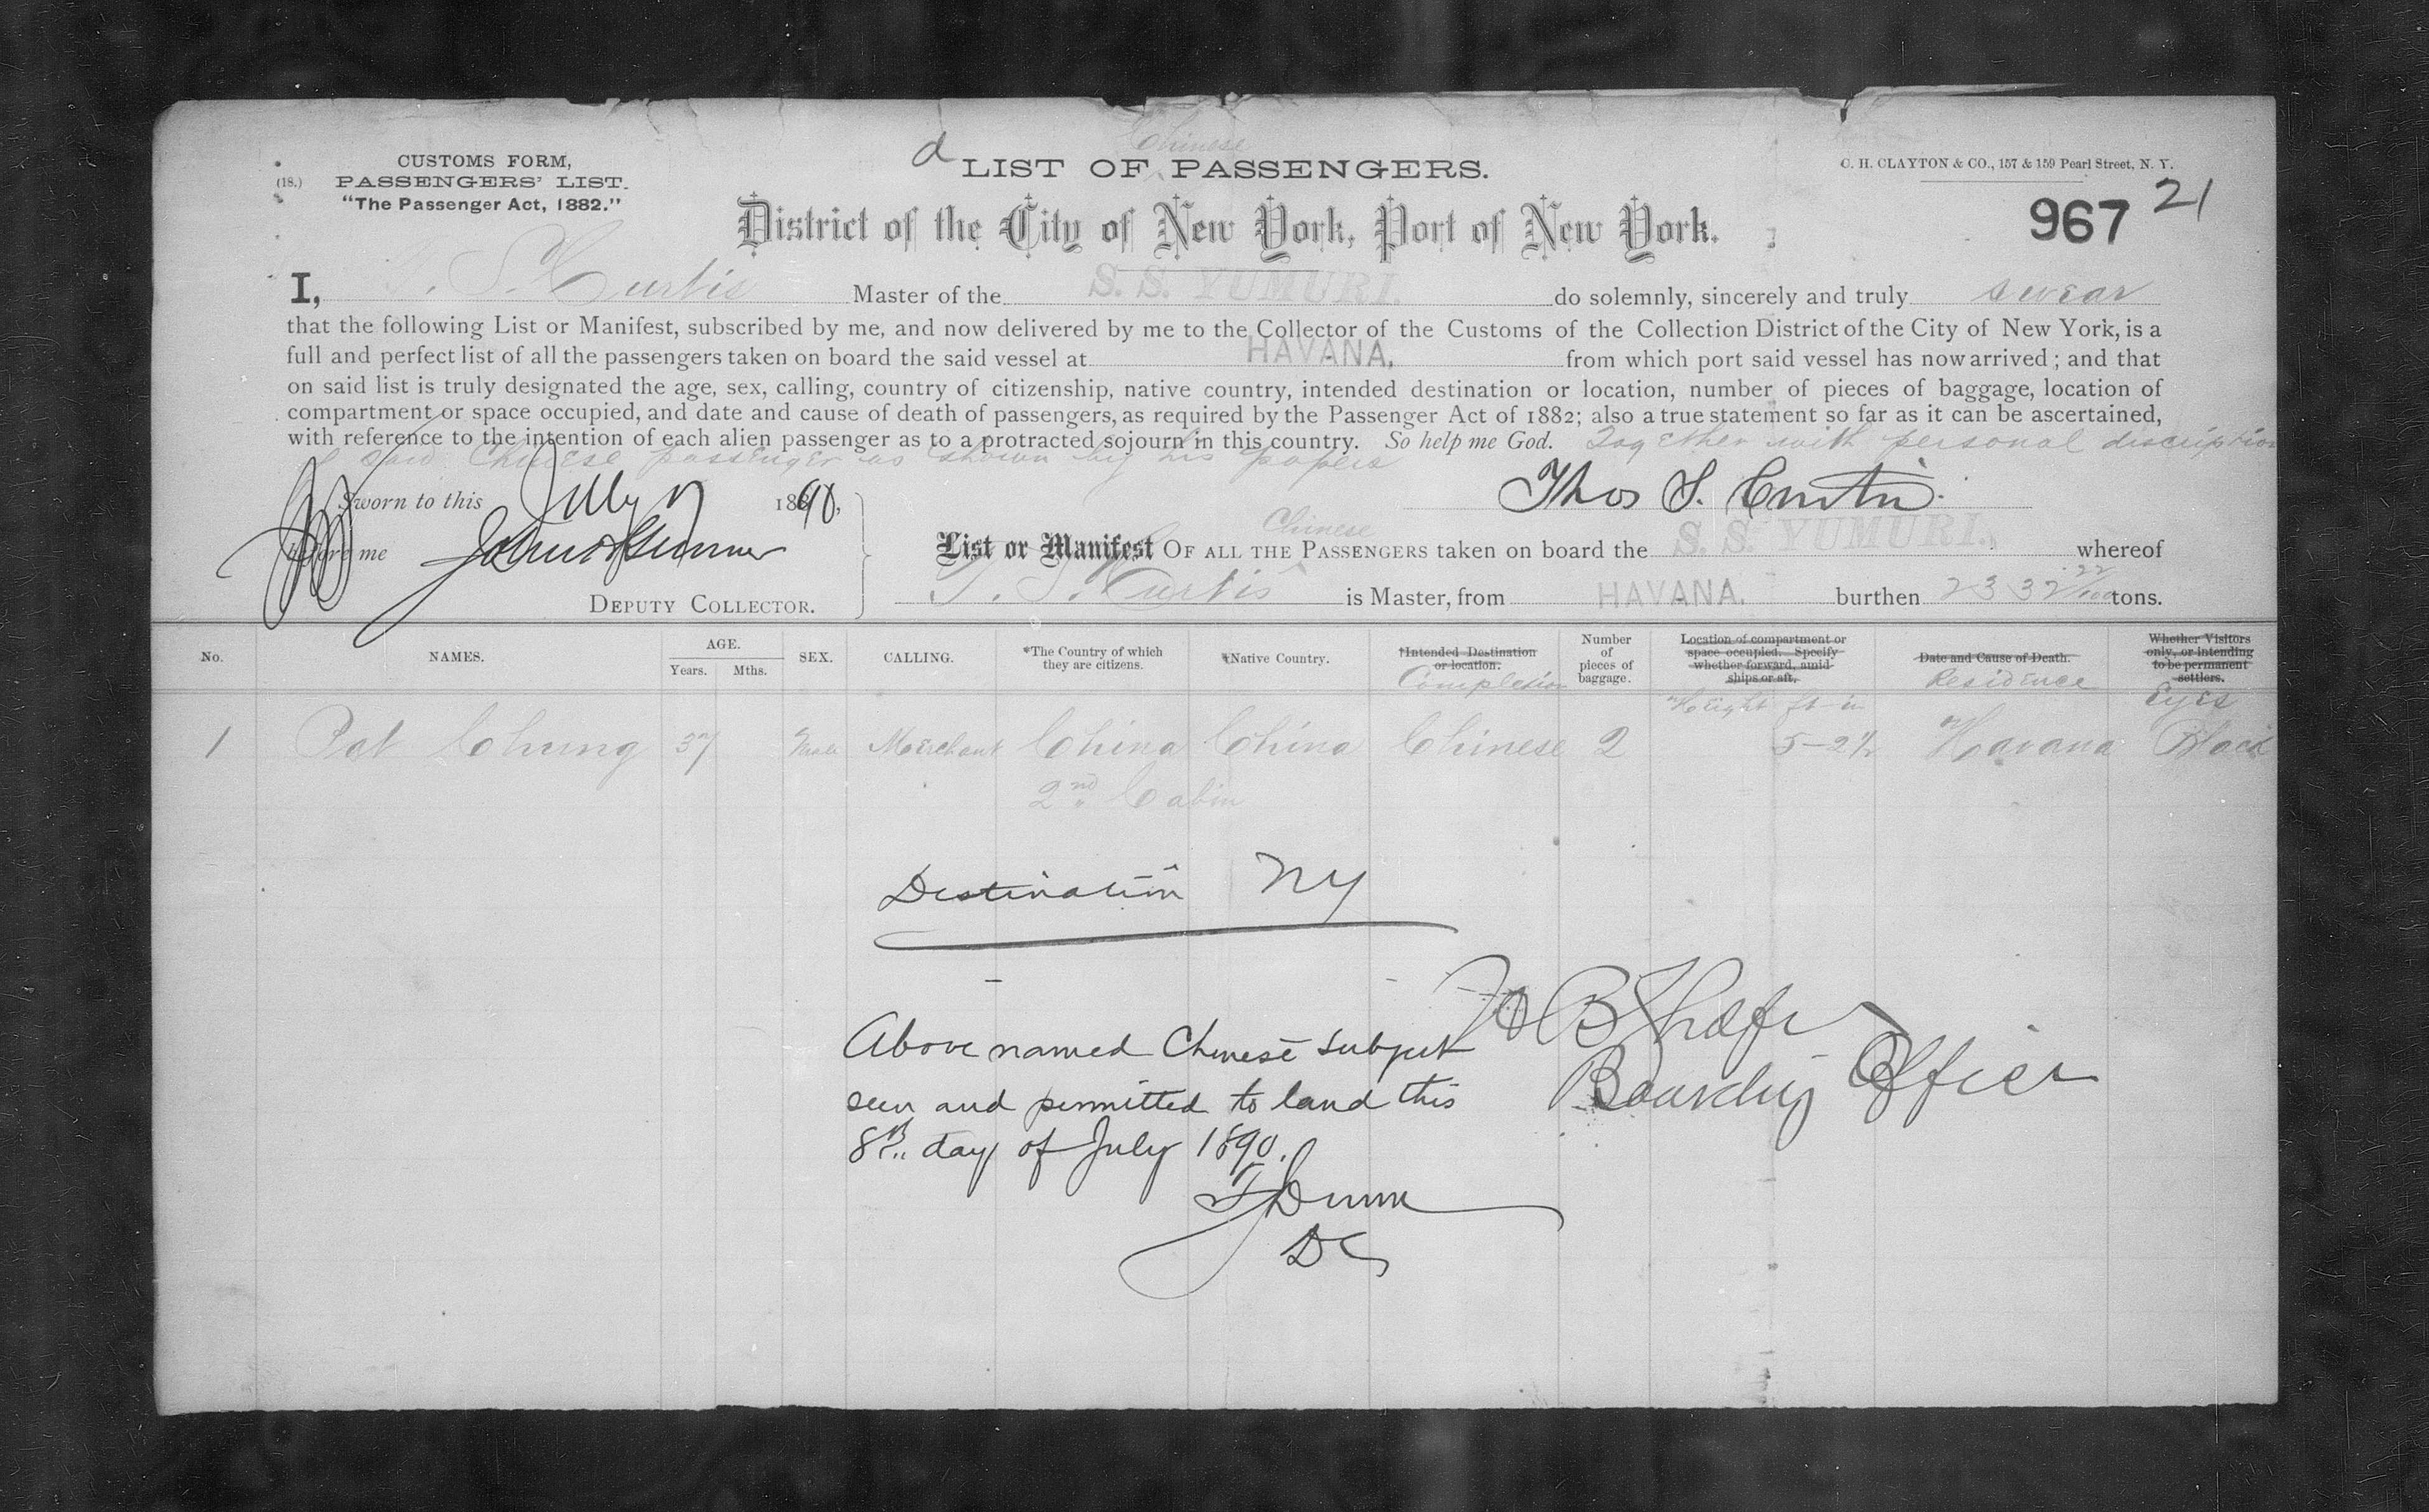 Chinese
a LIST OF PASSENGERS.
CUSTOMS FORM,
(18.) PASSENGERS' LIST.
"The Passenger Act, 1882."
C. H. CLAYTON & CO., 157 & 159 Pearl Street, N. Y.
967 21
District of the City of New York, Port of New York.
I, T. S. Curtis Master of the S. S. YUMURI. do solemnly, sincerely and truly swear
that the following List or Manifest, subscribed by me, and now delivered by me to the Collector of the Customs of the Collection District of the City of New York, is a
full and perfect list of all the passengers taken on board the said vessel at HAVANA, from which port said vessel has now arrived; and that
on said list is truly designated the age, sex, calling, country of citizenship, native country, intended destination or location, number of pieces of baggage, location of
compartment or space occupied, and date and cause of death of passengers, as required by the Passenger Act of 1882; also a true statement so far as it can be ascertained,
with reference to the intention of each alien passenger as to a protracted sojourn in this country. So help me God. Together with personal discription
of said Chinese passenger as shown by his papers
Sworn to this July 1890,
Thos S. Curtis
before me
DEPUTY COLLECTOR.
Chinese
List or Manifest OF ALL THE PASSENGERS taken on board the S. S. YUMURI., whereof
T. S. Curtis is Master, from HAVANA. burthen 2332 22/100 tons.
No. NAMES. AGE. Years. Mths. SEX. CALLING. *The Country of which they are citizens. †Native Country. †Intended Destination or location. Number of pieces of baggage. Location of compartment or space occupied. Specify whether forward, amid ships or aft. Date and Cause of Death. Whether Visitors only, or intending to be permanent settlers.
Complexion Height ft in Residence Eyes
1 Pat Chung 37 Male Merchant China China Chinese 2 5-2½ Havana Black
2nd Cabin
Destination NY
Above named Chinese subject
seen and permitted to land this
8th day of July 1890.
Dunn
DC
Boarding Officer